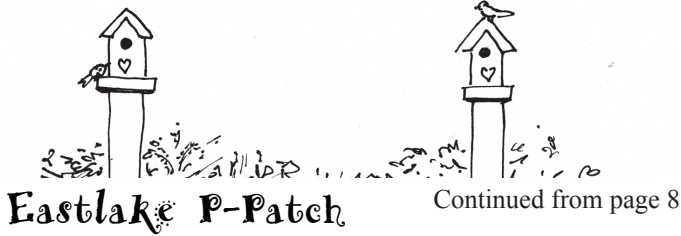 Eastlake P-Patch
Continued from page 8